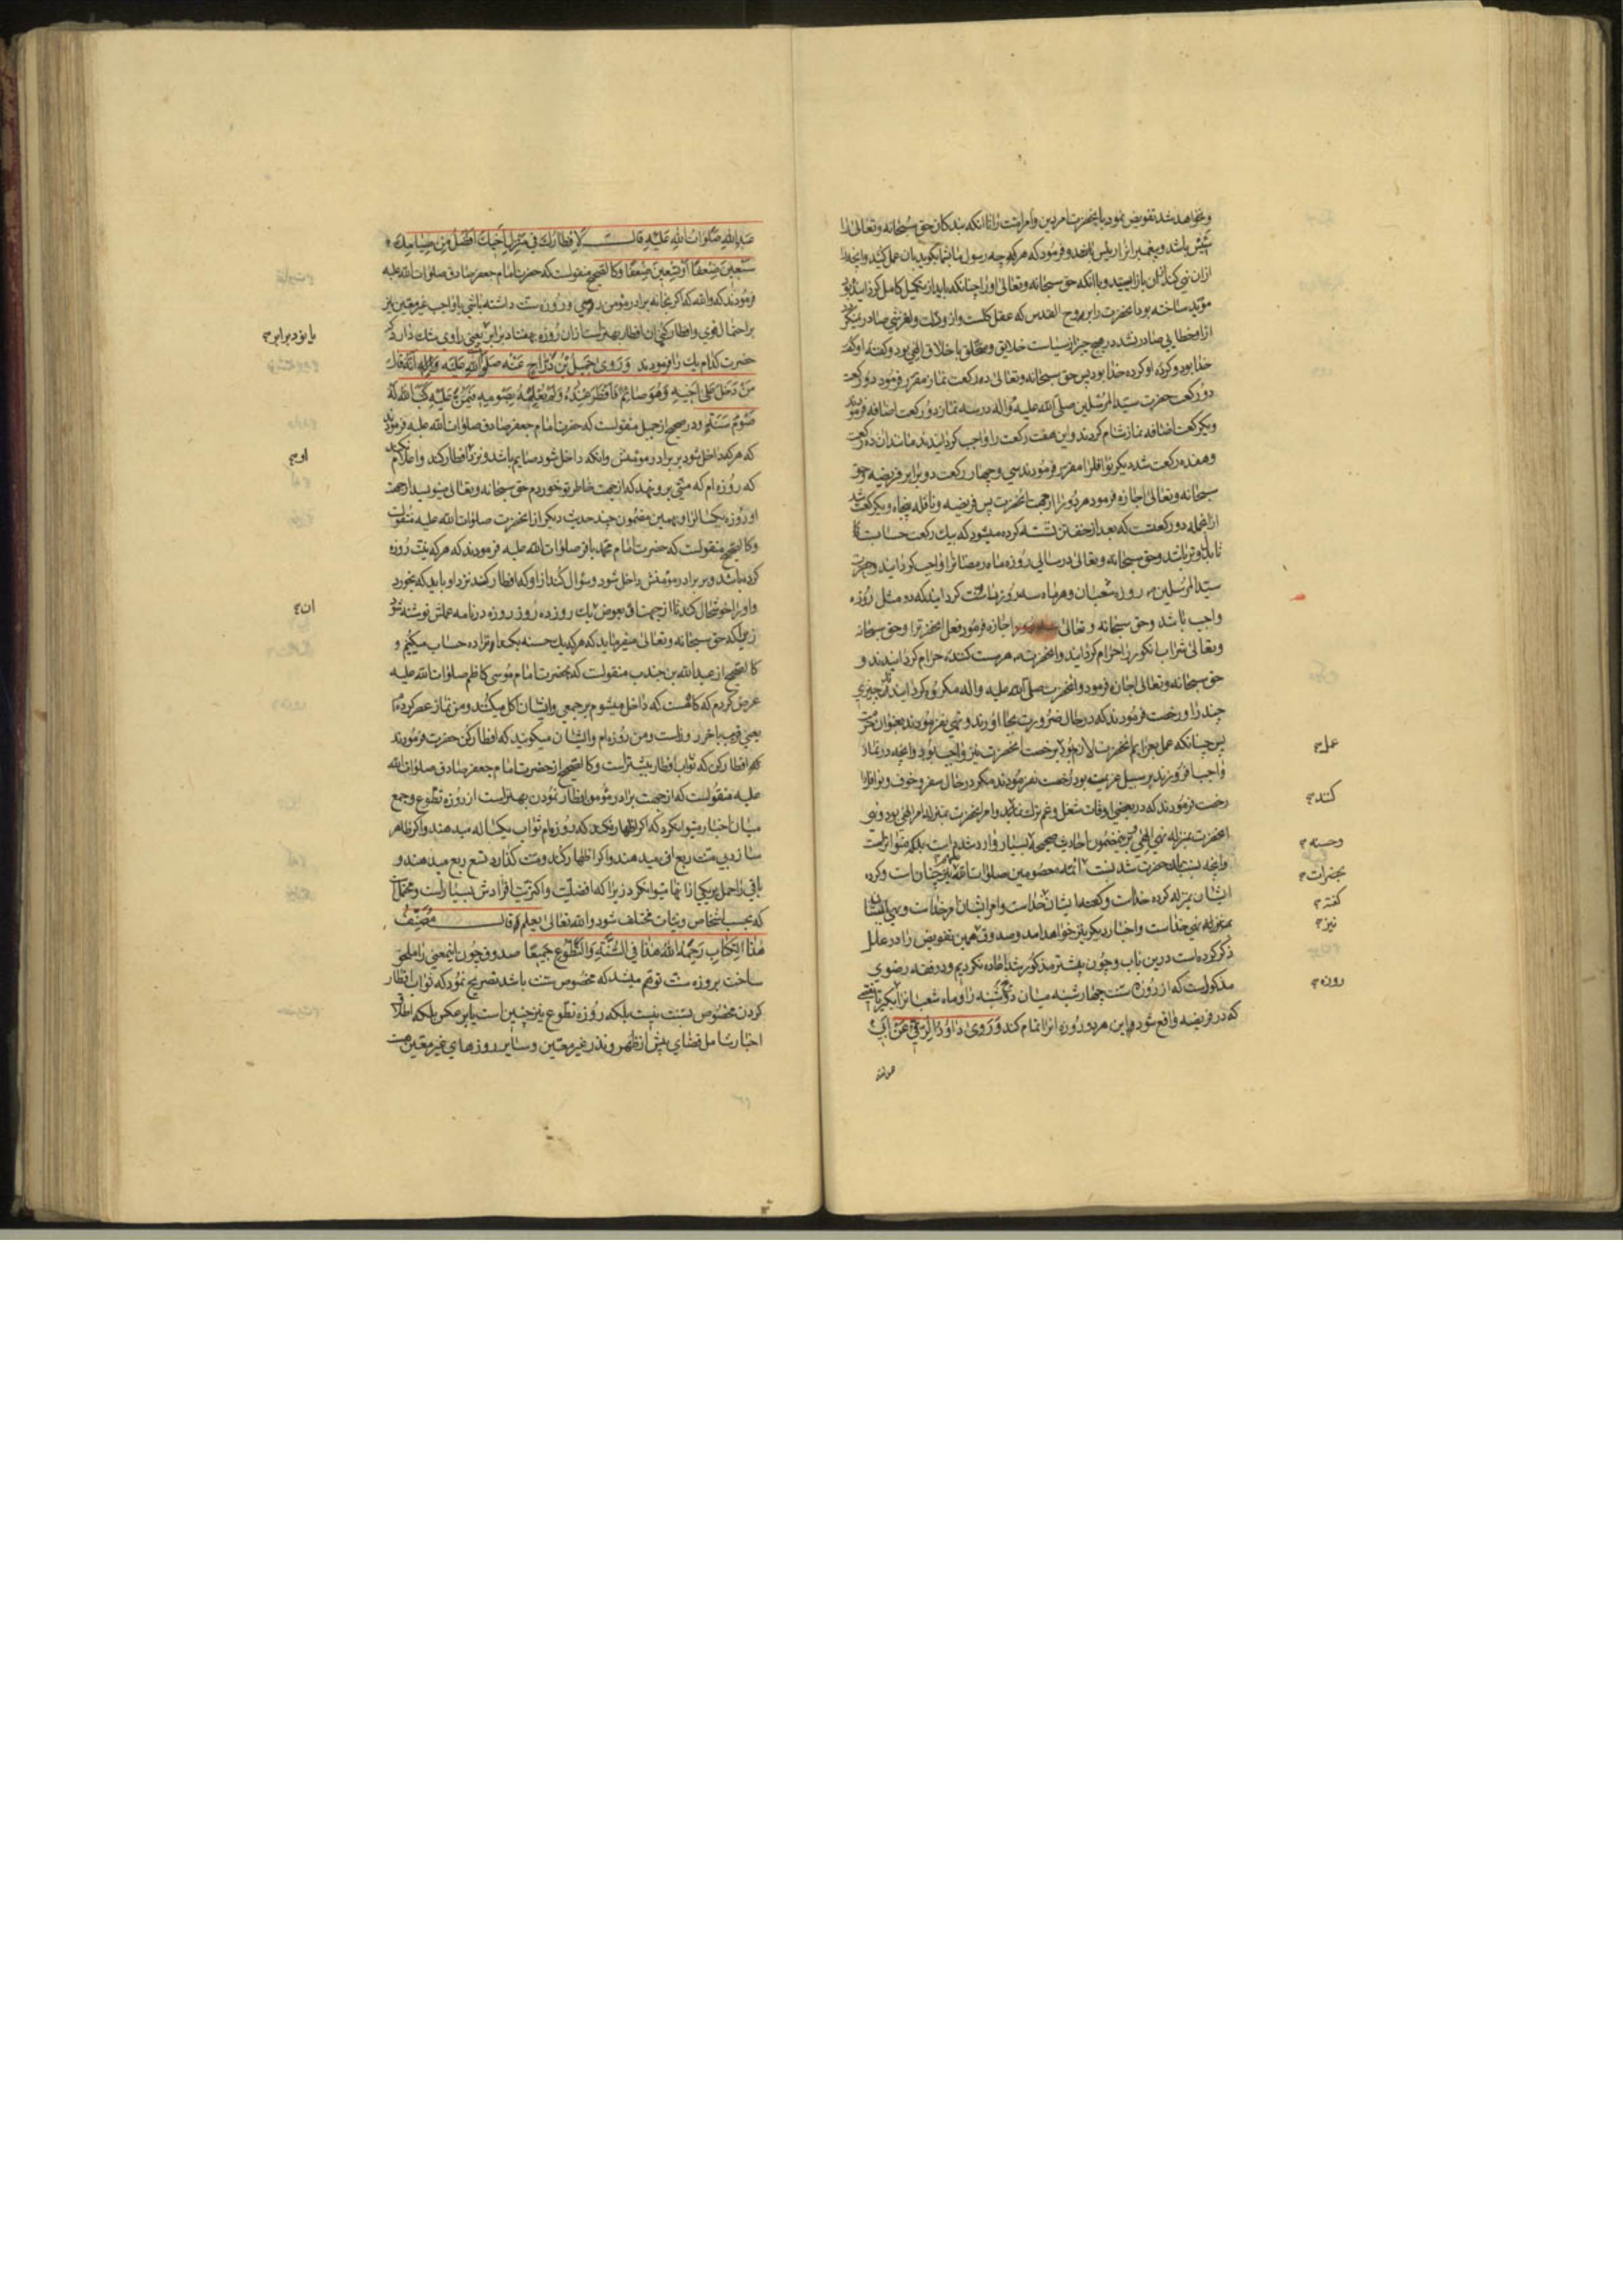 و بخواهد شد تفویض نمود بانحضرت امر دین و امر امت را تا انکه بندکان حق سبحانه و تعالی را
ازان نهی کند ازان باز ایستید و با انکه حق سبحانه و تعالی او را چنانکه باید از تکمیل کامل کردانید بود
مؤید ساخته بود انحضرت را بروح القدس که عقل کلست و ازو زلت و لغزشی صادر نمیکردد
ازو خطایی صادر نشد در هیچ چیز از سیاست خلایق و متخلق باخلاق الهی بود و کفته او کفته
خدا بود و کرده او کرده خدا بود پس حق سبحانه و تعالی ده رکعت نماز مقرر فرمود دو رکعت
دو رکعت حضرت سید المرسلین صلی الله علیه و اله در سه نماز دو رکعت اضافه فرمودند
و یکرکعت اضافه نماز شام کردند و این هفت رکعت را واجب کردانیدند مانند ان ده رکعت
و هفده رکعت شد دیکر نوافل را مقرر فرمودند سی و چهار رکعت دو برابر فریضه و حق
سبحانه و تعالی اجازه فرمود هر دو را از جهت انحضرت پس فریضه و نافله پنجاه و یکرکعت شد
ازانجمله دو رکعتست که بعد از خفتن نشسته کرده میشود که بیک رکعت حسابست تا
و حق سبحانه و تعالی در سالی روزه ماه رمضانرا واجب کردانید و حضرت
سید المرسلین روزه شعبان و هر ماه سه روز را سنت کردانید که دو مثل روزه
واجب باشد و حق سبحانه و تعالی اجازه فرمود فعل انحضرترا و حق سبحانه
و تعالی شراب انکور را حرام کردانید و انحضرت هر مست کننده حرام کردانیدند و
حق سبحانه و تعالی اجازه فرمود و انحضرت صلی الله علیه و اله مکروه کردانیدند چیزی
چند را و رخصت فرمودند که در حال ضرورت بجا اورند و نهی نفرمودند بعنوان حرمت
پس چنانکه عمل بعزایم انحضرت لازم بود برخصت انحضرت نیز واجب بود و انچه در نماز
واجب افزودند بر سبیل عزیمت بود رخصت نفرمودند مکر در حال سفر و خوف و نوافل را
رخصت فرمودند که در بعضی اوقات شغل و غم ترک نمایند و امر انحضرت بمنزله امر الهی بود و نهی
انحضرت بمنزله نهی الهی و برین مضمون احادیث صحیحه بسیار وارد شده است بلکه متواتر است
و انچه نسبت بانحضرت شد نسبت بائمه معصومین صلوات الله علیهم نیز چنان است و کرده
ایشان بمنزله کرده خداست و کفته ایشان کفته خداست و امر ایشان امر خداست و نهی ایشان
بمنزله نهی خداست و اخبار دیکر نیز خواهد امد و صدوق همین تفویض را در علل
ذکر کرده است درین باب و چون پیشتر مذکور شد اعاده نکردیم و در فقه رضوی
مذکورست که از روزه سنت چهارشنبه میان دو پنجشنبه را و ماه شعبانرا بکیر تا نقصی
که در فریضه واقع شود باین هر دو روزه انرا تمام کند وَرَوی دَاوُدُ الرَّقِّیُّ عَنْ اَبِی
عمل
کنند
وحسنه
بحضرات
کفته
نیز
روزه
عَبْدِ اللهِ صَلَوَاتُ اللهِ عَلَیْهِ قَالَ لَاِفْطَارُکَ فِی مَنْزِلِ اَخِیکَ اَفْضَلُ مِنْ صِیَامِکَ
سَبْعِینَ ضِعْفًا اَوْ تِسْعِینَ ضِعْفًا و کالصحیح منقولست که حضرت امام جعفر صادق صلوات الله علیه
فرمودند که والله که اکر بخانه برادر مؤمن روی و روزه سنت داشته باشی یا واجب غیر معین نیز
بر احتمال قوی و افطار کنی ان افطار بهتر است ازان روزه بهفتاد برابر یعنی راوی شک دارد که
حضرت کدام یک را فرمودند وَرَوی جَمِیلُ بْنُ دَرَّاجٍ عَنْهُ صَلَوَاتُ اللهِ عَلَیْهِ اَنَّهُ قَالَ
مَنْ دَخَلَ عَلی اَخِیهِ وَهُوَ صَائِمٌ فَاَفْطَرَ عِنْدَهُ وَلَمْ یُعْلِمْهُ بِصَوْمِهِ فَیَمُنَّ عَلَیْهِ کَتَبَ اللهُ لَهُ
صَوْمَ سَنَةٍ و در صحیح از جمیل منقولست که حضرت امام جعفر صادق صلوات الله علیه فرمودند
که هر که داخل شود بر برادر مؤمنش و انکه داخل شود صایم باشد و نزد افطار کند و اعلام نکند
که روزه ام که منتی برو نهد که از جهت خاطر تو خوردم حق سبحانه و تعالی بنویسد از جهت
او روزه یکساله را و بهمین مضمون چند حدیث دیکر از انحضرت صلوات الله علیه منقولست
و کالصحیح منقولست که حضرت امام محمد باقر صلوات الله علیه فرمودند که هر که نیت روزه
کرده باشد و بر برادر مؤمنش داخل شود و سؤال کند ازو که افطار کند نزد او باید که بخورد
و او را خوشحال کند تا از جهت او بعوض یک روزه ده روز روزه در نامه عملش نوشته شود
زیرا که حق سبحانه و تعالی میفرماید که هر که یک حسنه بکند او را ده حساب میکنیم و
کالصحیح از عبدالله بن جندب منقولست که بحضرت امام موسی کاظم صلوات الله علیه
عرض کردم که کاهست که داخل میشوم بر جمعی و ایشان اکل میکنند و من نماز عصر کرده ام
یعنی قریب باخر روزست و من روزه ام و ایشان میکویند که افطار کن حضرت فرمودند
که افطار کن که ثواب افطار بیشتر است و کالصحیح از حضرت امام جعفر صادق صلوات الله
علیه منقولست که از جهت برادر مؤمن افطار نمودن بهتر است از روزه تطوع و جمع
میان اخبار میتوان کرد که اکر اظهار نکند که روزه ام ثواب یکساله میدهند و اکر ظاهر
سازد بی منت ربع ان میدهند و اکر اظهار کند و منت کذارد تسع ربع میدهند و
باقی را حمل بر یکی ازانها میتوان کرد زیرا که افضلیت و اکثریت افرادش بسیار است و محتملست
که بحسب اشخاص و نیات مختلف شود والله تعالی یعلم قَالَ مُصَنِّفُ
هٰذَا الْکِتَابِ رَحِمَهُ اللهُ هٰذَا فِی السُّنَّةِ وَالتَّطَوُّعِ جَمِیعًا صدوق چون اینمعنی را ملحق
ساخت بروزه سنت توهم میشد که مخصوص سنت باشد تصریح نمود که ثواب افطار
کردن مخصوص سنت نیست بلکه روزه تطوع نیز چنین است یا بر عکس بلکه اطلاق
اخبار شامل قضای پیش از ظهر و نذر غیر معین و سایر روزهای غیر معین هست
یا نود برابر
او
ان